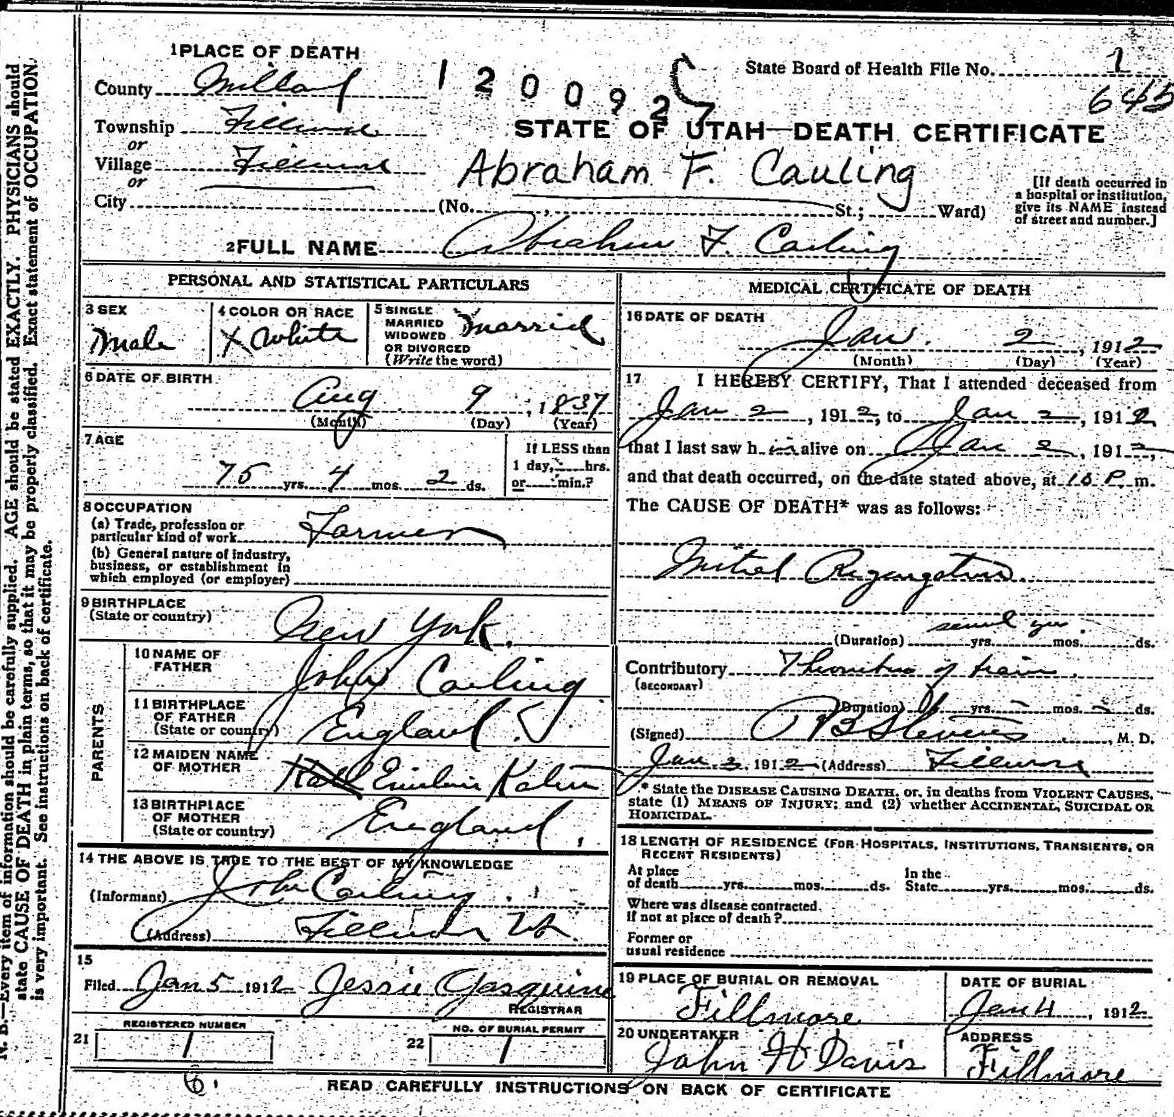 1 PLACE OF DEATH
County Millard
1 2 0 0 9 2
State Board of Health File No. 1
645
Township Fillmore
or
Village Fillmore
or
City
STATE OF UTAH—DEATH CERTIFICATE
Abraham F. Cauling
(No. St.; Ward)
[If death occurred in
a hospital or institution,
give its NAME instead
of street and number.]
2 FULL NAME Abraham F. Carling
PERSONAL AND STATISTICAL PARTICULARS
3 SEX
Male
4 COLOR OR RACE
X White
5 SINGLE
MARRIED
WIDOWED
OR DIVORCED
(Write the word)
Married
6 DATE OF BIRTH
Aug 9, 1837
(Month) (Day) (Year)
7 AGE
75 yrs. 4 mos. 2 ds.
If LESS than
1 day, hrs.
or min.?
8 OCCUPATION
(a) Trade, profession or
particular kind of work Farmer
(b) General nature of industry,
business, or establishment in
which employed (or employer)
9 BIRTHPLACE
(State or country)
New York.
PARENTS
10 NAME OF
FATHER
John Carling
11 BIRTHPLACE
OF FATHER
(State or country)
England
12 MAIDEN NAME
OF MOTHER
13 BIRTHPLACE
OF MOTHER
(State or country)
England.
14 THE ABOVE IS TRUE TO THE BEST OF MY KNOWLEDGE
(Informant) John Carling
(Address) Fillmore Ut.
15
Filed Jan 5 1912 Jessie Gasquine
REGISTRAR
21 REGISTERED NUMBER
1
22 NO. OF BURIAL PERMIT
1
MEDICAL CERTIFICATE OF DEATH
16 DATE OF DEATH
Jan. 2, 1912
(Month) (Day) (Year)
17 I HEREBY CERTIFY, That I attended deceased from
Jan 2, 1912, to Jan 2, 1912
that I last saw h im alive on Jan 2, 1912,
and that death occurred, on the date stated above, at 10 P. m.
The CAUSE OF DEATH* was as follows:
Mitral Regurgitation
(Duration) several yrs. mos. ds.
Contributory Thrombus of brain.
(SECONDARY)
(Duration) yrs. mos. ds.
(Signed) Stevens, M. D.
Jan 3 1912 (Address) Fillmore
* State the DISEASE CAUSING DEATH, or, in deaths from VIOLENT CAUSES,
state (1) MEANS OF INJURY; and (2) whether ACCIDENTAL, SUICIDAL OR
HOMICIDAL.
18 LENGTH OF RESIDENCE (FOR HOSPITALS, INSTITUTIONS, TRANSIENTS, OR
RECENT RESIDENTS)
At place
of death yrs. mos. ds.
In the
State yrs. mos. ds.
Where was disease contracted.
if not at place of death?
Former or
usual residence
19 PLACE OF BURIAL OR REMOVAL
Fillmore
DATE OF BURIAL
Jan 4, 1912
20 UNDERTAKER
John H Davis
ADDRESS
Fillmore
6.
READ CAREFULLY INSTRUCTIONS ON BACK OF CERTIFICATE
N. B.—Every item of information should be carefully supplied. AGE should be stated EXACTLY. PHYSICIANS should
state CAUSE OF DEATH in plain terms, so that it may be properly classified. Exact statement of OCCUPATION
is very important. See instructions on back of certificate.